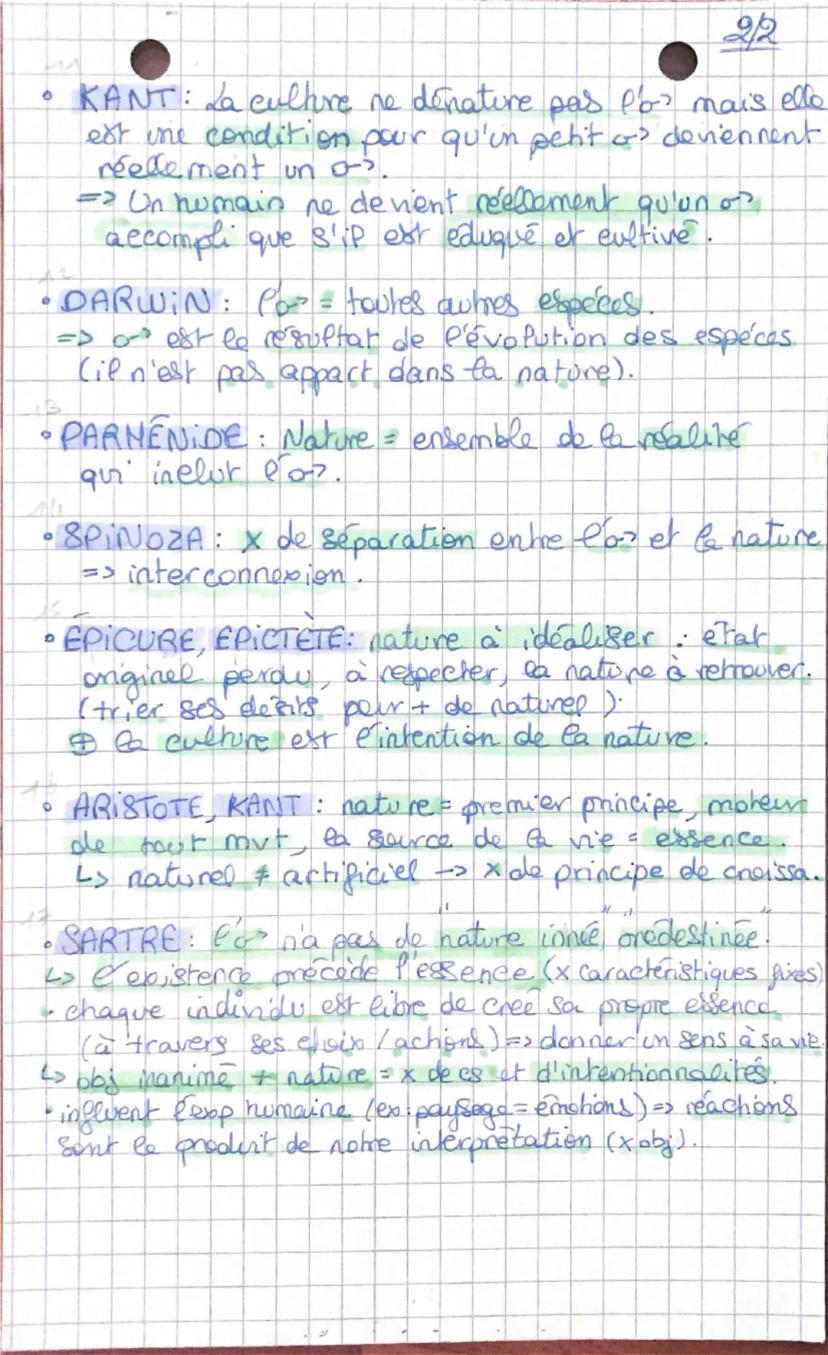 2/2
• KANT : La culture ne dénature pas l'♂ mais elle
est une condition pour qu'un petit ♂ deviennent
réellement un ♂.
=> Un humain ne devient réellement qu'un ♂
accompli que s'il est éduqué et cultivé.
12
• DARWIN : l'♂ = toutes autres espèces.
=> ♂ est le résultat de l'évolution des espèces
(il n'est pas appart dans la nature).
13
• PARMÉNIDE : Nature = ensemble de la réalité
qui inclut l'♂.
14
• SPINOZA : x de séparation entre l'♂ et la nature
=> interconnexion.
15
• ÉPICURE, EPICTÈTE : nature à idéaliser : état
originel perdu, à respecter, la nature à retrouver.
(trier ses désirs pour + de naturel).
⊕ la culture est l'intention de la nature.
16
• ARISTOTE, KANT : nature = premier principe, moteur
de tout mvt, la source de la vie = essence.
↳ naturel ≠ artificiel -> x de principe de croissa.
17
• SARTRE : l'♂ n'a pas de nature "innée" "prédestinée".
↳ l'existence précède l'essence (x caractéristiques fixes)
• chaque individu est libre de creé sa propre essence
(à travers ses choix / actions) => donner un sens à sa vie.
↳ obj inanimé + nature = x de cs et d'intentionnalités.
• influent l'exp humaine (ex : paysage = émotions) => réactions
sont le produit de notre interprétation (x obj).